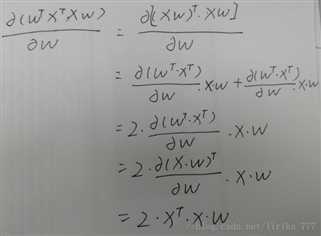 ∂(wᵀXᵀXw)/∂w = ∂[(Xw)ᵀ·Xw]/∂w
= ∂(wᵀ·Xᵀ)/∂w ·X·w + ∂(wᵀ·Xᵀ)/∂w ·X·w
= 2·∂(wᵀ·Xᵀ)/∂w ·X·w
= 2·∂(X·w)ᵀ/∂w ·X·w
= 2·Xᵀ·X·w
blog.csdn.net/lirika_777